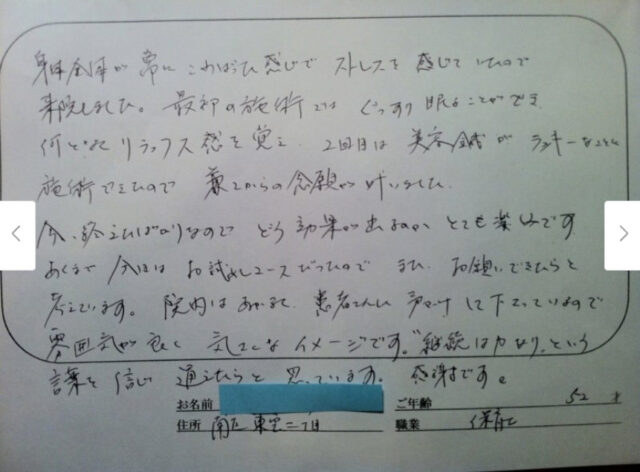 身体全体が常に こわばった感じで ストレスを 感じていたので
来院しました。 最初の施術では ぐっすり 眠ることができ
何となく リラックス感を覚え、 2回目は 美容鍼が ラッキーなことに
施術できたので 兼ねてからの念願が 叶いました。
今、終えたばかりなので どう効果が出るのか、 とても楽しみです
あくまで 今回は お試しコースだったので また、 お願いできたらと
考えています。 院内は あかるく、 患者さんに 声かけして下さっているので
雰囲気が良く 気さくな イメージです。"継続は力なり"という
言葉を 信じ 通えたらと 思っています。 感謝です。
お名前 ご年齢 52 才
住所 南区 東雲二丁目 職業 保育士